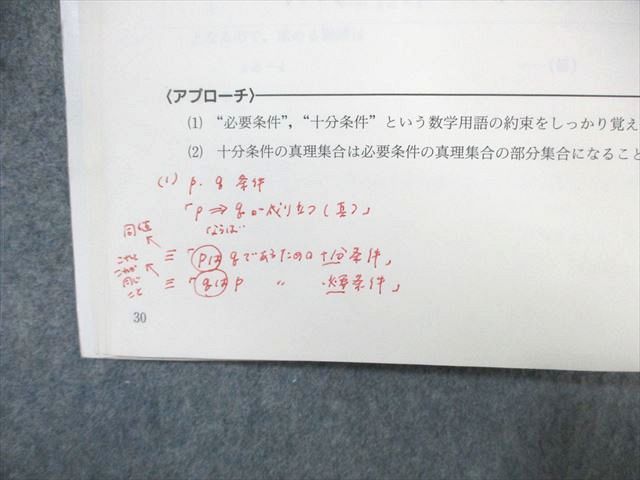 〈アプローチ〉
(1) “必要条件”,“十分条件”という数学用語の約束をしっかり覚え
(2) 十分条件の真理集合は必要条件の真理集合の部分集合になること
(1) p, q 条件
「p ⇒ q が成り立つ(真)」
ならば
同値
≡「pは qであるための十分条件」
≡「qは p 〃 必要条件」
30